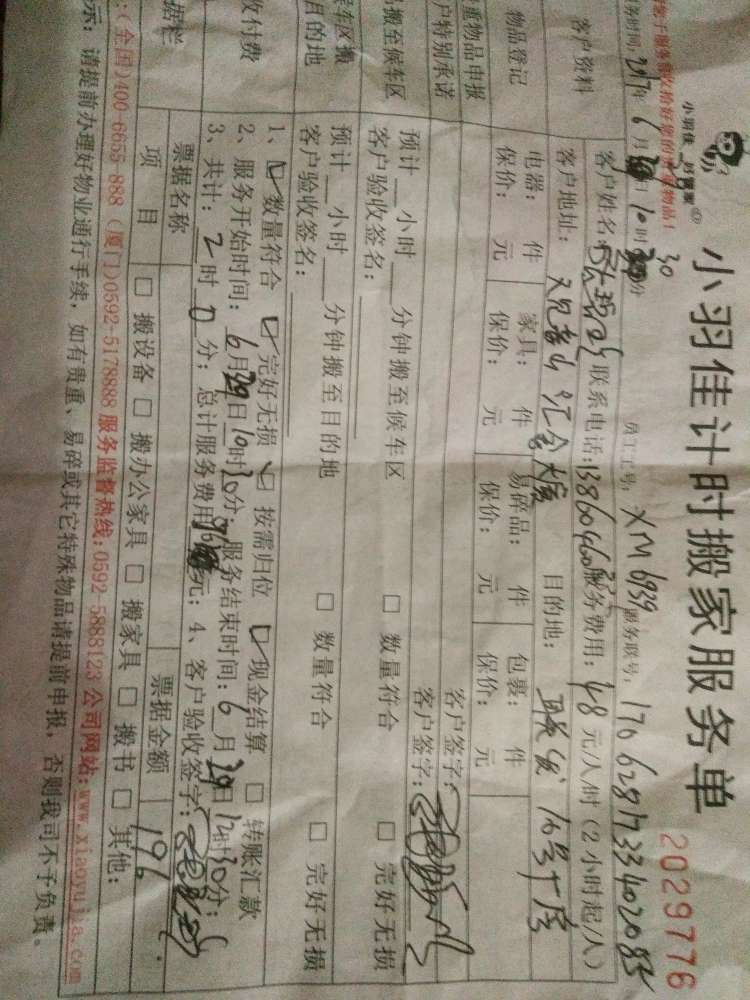 小羽佳计时搬家服务单
2029776
小羽佳 好管家
员工工号: XM6939 服务联号: 1706281733402085
客户资料
客户姓名: 联系电话: 服务费用: 48 元/人时（2小时起/人）
客户地址: 观音山 汇金大厦 目的地: 联发 16号厂房
物品登记
电器: 件 家具: 件 易碎品: 件 包裹: 件
保价: 元 保价: 元 保价: 元 保价: 元
重物品申报 客户签字:
户特别承诺 客户签字:
搬至候车区
预计 小时 分钟搬至候车区 □ 数量符合 □ 完好无损
客户验收签名:
候车区搬
目的地
预计 小时 分钟搬至目的地 □ 数量符合 □ 完好无损
客户验收签名:
收付费
1、☑ 数量符合 ☑ 完好无损 ☑ 按需归位 ☑ 现金结算 □ 转账汇款
2、服务开始时间: 6月29日10时30分 服务结束时间: 6月29日12时30分;
3、共计: 2时0分; 总计服务费用 元; 4、客户验收签字:
据栏
票据名称 票据金额 196
项 目 □ 搬设备 □ 搬办公家具 □ 搬家具 □ 搬书 □ 其他:
:(全国)400-6655-888 (厦门)0592-5178888 服务监督热线:0592-5888123 公司网站:www.xiaoyujia.com
示: 请提前办理好物业通行手续, 如有贵重、易碎或其它特殊物品请提前申报, 否则我司不予负责。